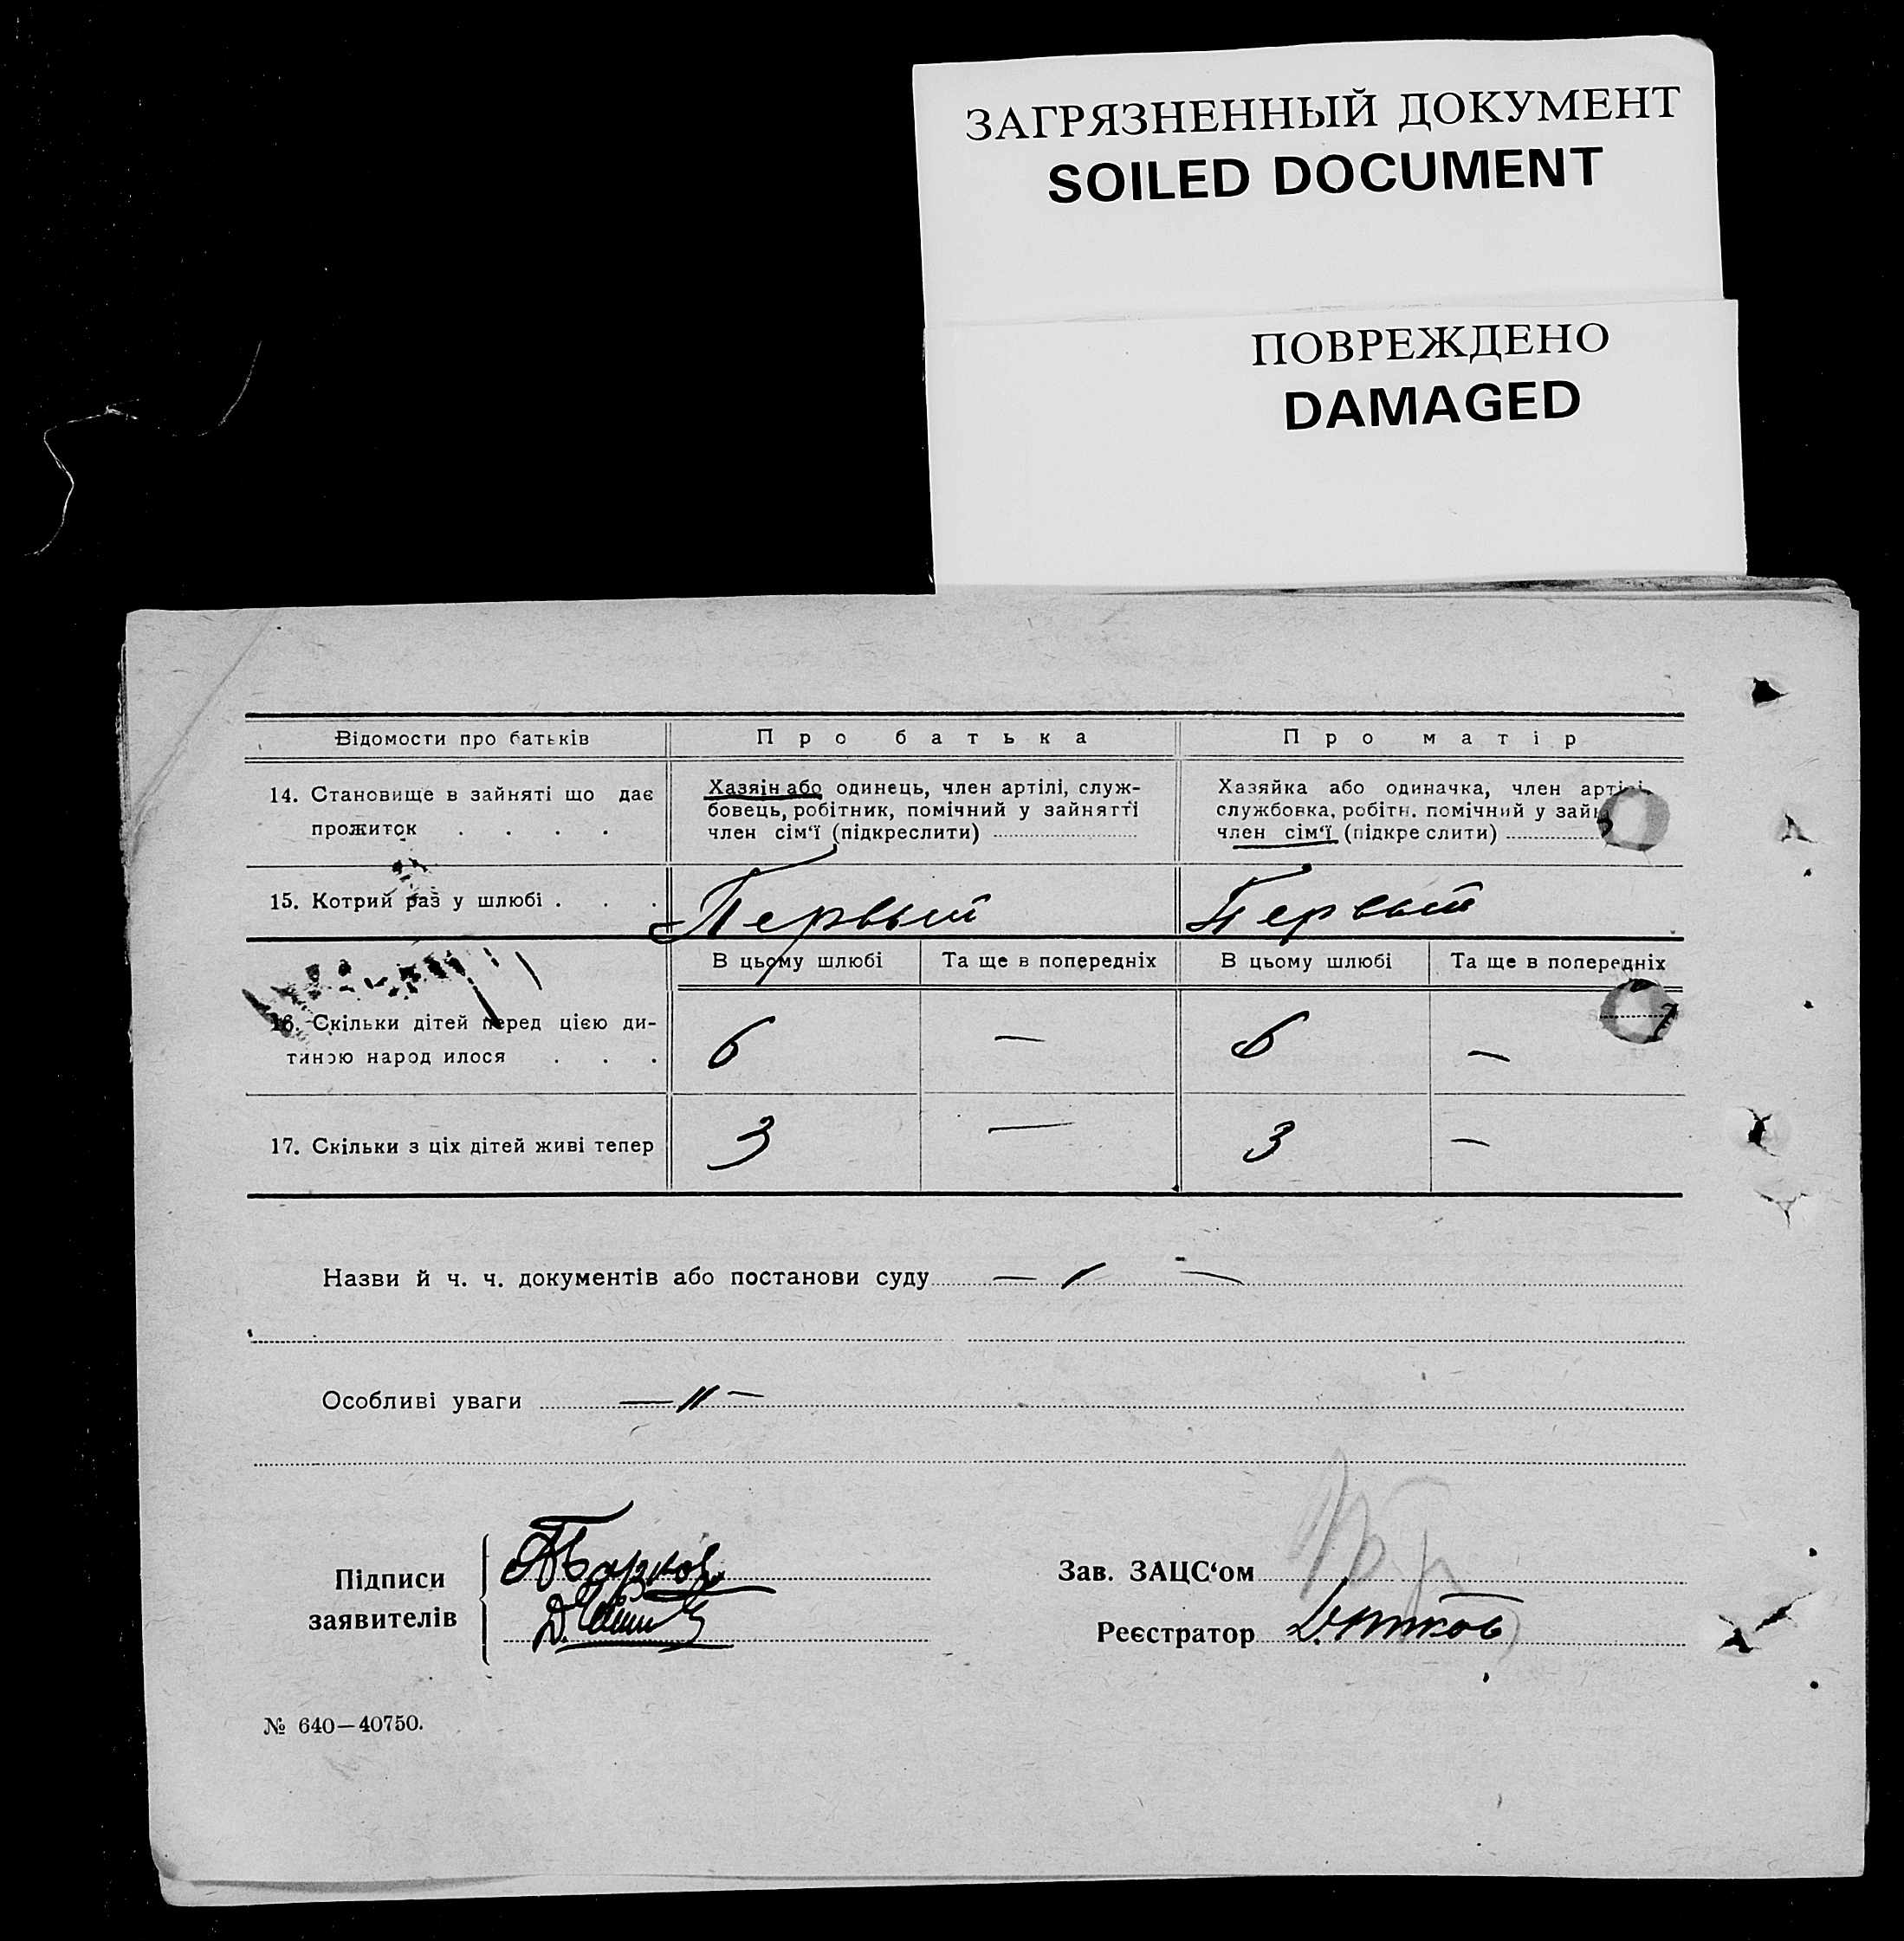 ЗАГРЯЗНЕННЫЙ ДОКУМЕНТ
SOILED DOCUMENT
ПОВРЕЖДЕНО
DAMAGED
Відомости про батьків
Про батька
Про матір
14. Становище в зайняті що дає
прожиток . . . .
Хазяін або одинець, член артілі, служ-
бовець, робітник, помічний у зайнятті
член сім‘ї (підкреслити)
Хазяйка або одиначка, член артілі
службовка, робітн. помічний у зайн
член сім‘ї (підкреслити)
15. Котрий раз у шлюбі . . .
Первый
Первый
В цьому шлюбі
Та ще в попередніх
В цьому шлюбі
Та ще в попередніх
16. Скільки дітей перед цією ди-
тиною народилося . . .
6
—
6
—
7
17. Скільки з ціх дітей живі тепер
3
—
3
—
Назви й ч. ч. документів або постанови суду
Особливі уваги — 〃 —
Підписи
заявителів
Зав. ЗАЦС‘ом
Реєстратор
№ 640—40750.